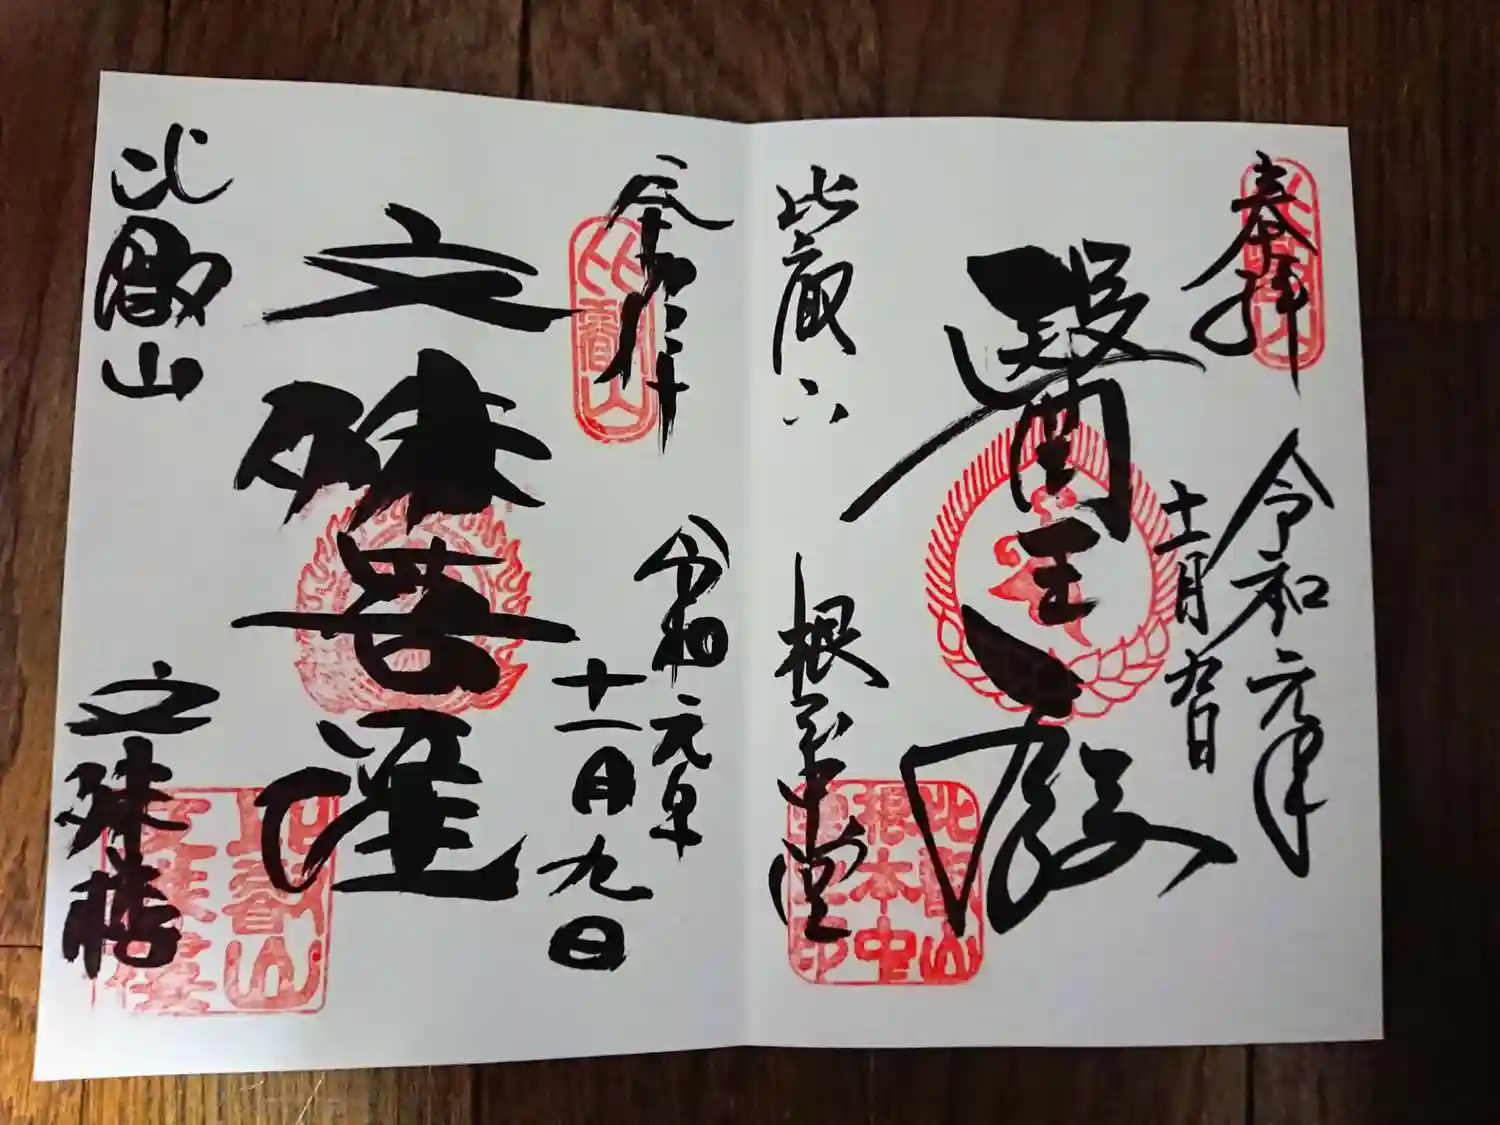 奉拝
令和元年
十一月九日
醫王殿
比叡山
根本中堂
比叡山
根本中
奉拝
比叡山
令和元年
十一月九日
文殊菩薩
比叡山
文殊楼
比叡山
文殊楼